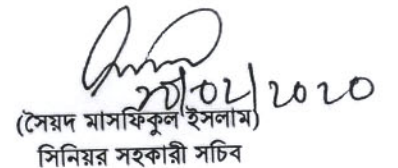 /02/2020
(সৈয়দ মাসফিকুল ইসলাম)
সিনিয়র সহকারী সচিব